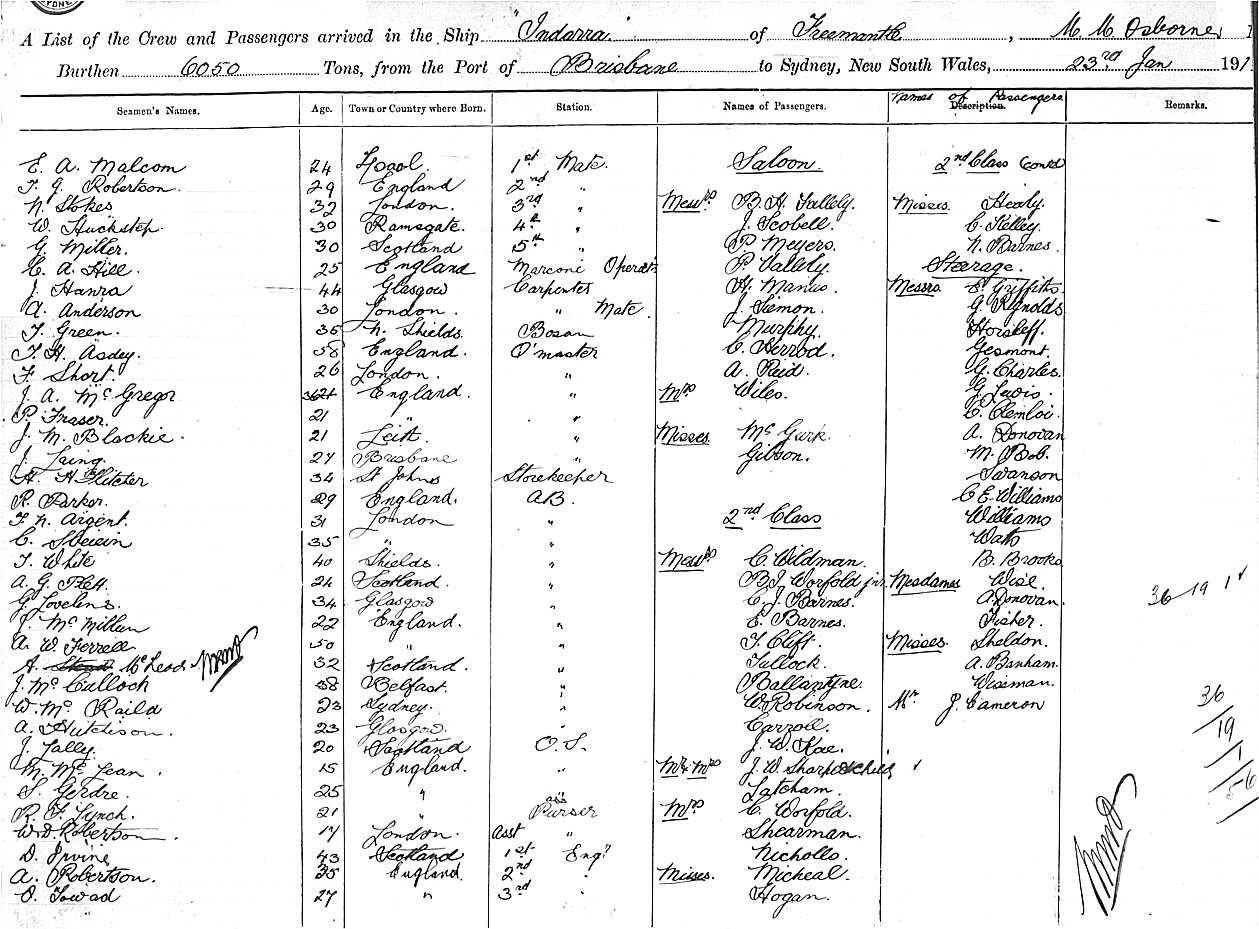 A List of the Crew and Passengers arrived in the Ship "Indarra" of Freemantle, M. M. Osborne
Burthen 6050 Tons, from the Port of Brisbane to Sydney, New South Wales, 23rd Jan 191
Seamen's Names. Age. Town or Country where Born. Station. Names of Passengers. Names of Passengers Description. Remarks.
E. A. Malcom 24 L'pool. 1st Mate Saloon. 2nd Class Contd
T. G. Robertson. 29 England 2nd "
N. Stokes 32 London. 3rd " Messrs B. H. Vallely. Misses. Healy.
W. Huckstep 30 Ramsgate. 4th " J. Scobell. C. Kelley.
G. Miller. 30 Scotland 5th " P. Meyers. N. Barnes.
C. A. Hill. 25 England Marconi Operatr P. Vallely. Steerage.
J. Hanra 44 Glasgow Carpenter H. Manus. Messrs. E. Griffiths.
A. Anderson 30 London. " Mate. J. Siemon. G. Reynolds
T. Green. 35 N. Shields. Bosun Murphy.
T. H. Asdey. 58 England. Q'master C. Herrod. Gesmont.
F. Short. 26 London. " A. Reid. G. Charles.
J. A. McGregor England. " Mrs Wiles.
P. Fraser. 21 " "
J. M. Blackie. 21 Leith. " Misses. McGurk. A. Donovan
J. Laing. 27 Brisbane " Gibson. M. Bob.
H. H. Fletcher 34 St Johns Storekeeper Swanson
R. Parker. 29 England. A.B. C. E. Williams
F. N. Argent. 31 London " 2nd Class Williams
C. 35 " " Wats
T. White 40 Shields. " Messrs C. Wildman. B. Brooks
A. G. 24 Scotland. " B. J. Worfold jnr. Mesdames Wise.
G. Lovelens. 34 Glasgow " C. J. Barnes. A. Donovan. 36 19 1
J. McMillan 22 England. " E. Barnes. Fisher.
A. W. Ferrell 50 " " T. Clift. Misses. Sheldon.
A. McLeod 32 Scotland. " Tullock. A. Banham.
J. McCulloch 38 Belfast. " Ballantyne. Wiseman.
W. McRaild 23 Sydney. " W. Robinson. Mr J. Cameron 36
A. Hutchison. 23 Glasgow. " Carroll. 19
J. Lally. 20 Scotland O.S. J. W. Rae. 1
M. McLean. 15 England. " Mr & Mrs J. W. Sharpe & child 56
S. Gerdre. 25 " " Latcham.
R. F. Lynch. 21 " Purser Mrs C. Worfold.
W. D. Robertson. 17 London. Asst " Shearman.
D. Irvine 43 Scotland 1st Engr Nicholls.
A. Robertson. 35 England 2nd " Misses. Micheal.
O. Towad 27 " 3rd " Hogan.